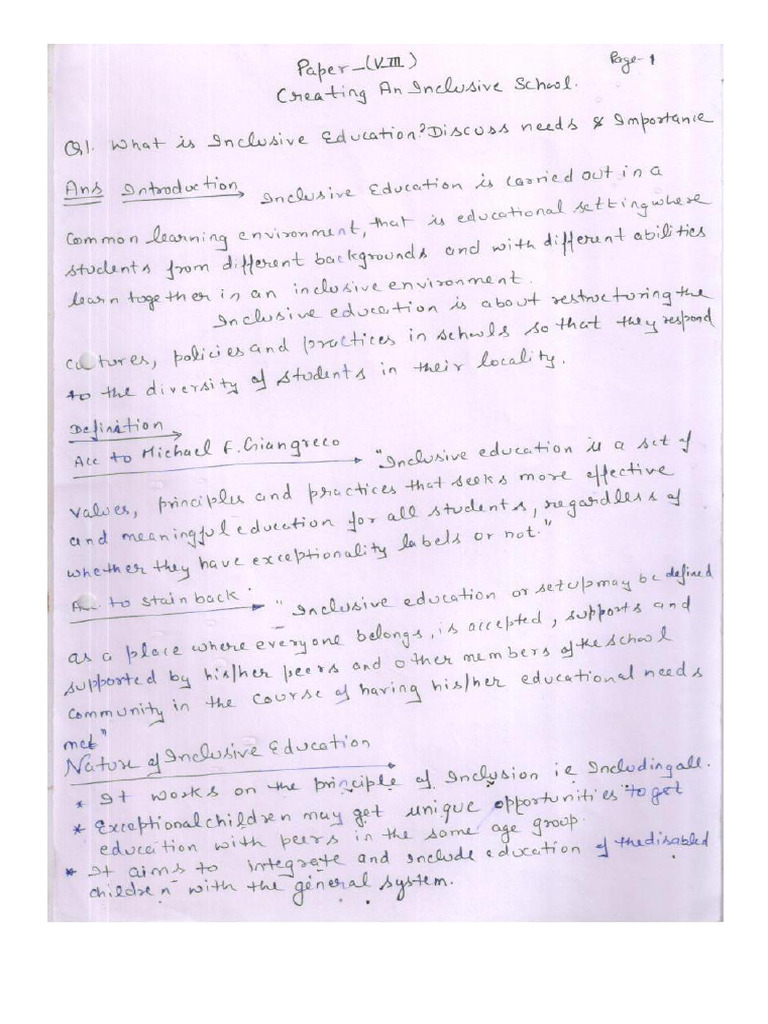 Paper-(VIII)
Page-1
Creating An Inclusive School.
Q1. What is Inclusive Education? Discuss needs & Importance
Ans Introduction → Inclusive Education is carried out in a
common learning environment, that is educational setting where
students from different backgrounds and with different abilities
learn together in an inclusive environment.
Inclusive education is about restructuring the
cultures, policies and practices in schools so that they respond
to the diversity of students in their locality.
Definition
Acc to Michael F. Giangreco → "Inclusive education is a set of
values, principles and practices that seeks more effective
and meaningful education for all students, regardless of
whether they have exceptionality labels or not."
Acc. to Stainback → "Inclusive education or setup may be defined
as a place where everyone belongs, is accepted, supports and
supported by his/her peers and other members of the school
community in the course of having his/her educational needs
met"
Nature of Inclusive Education
* It works on the principle of Inclusion ie Including all.
* Exceptional children may get unique opportunities to get
education with peers in the same age group.
* It aims to integrate and include education of the disabled
children with the general system.